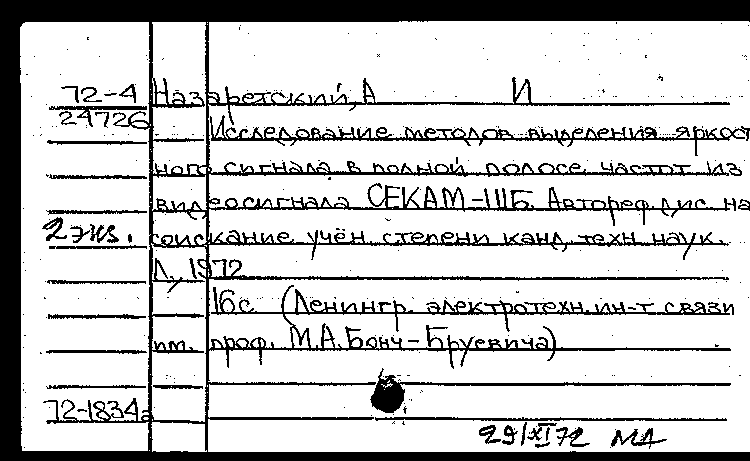 72-4 Назаретский, А И
24726
Исследование методов выделения яркост
ного сигнала в полной полосе частот из
видеосигнала СЕКАМ-IIIБ. Автореф. дис. на
2 экз. соискание учён. степени канд. техн. наук.
Л., 1972
16с (Ленингр. электротехн. ин-т связи
им. проф. М.А. Бонч-Бруевича)
72-1834а
29/XI 72 МА